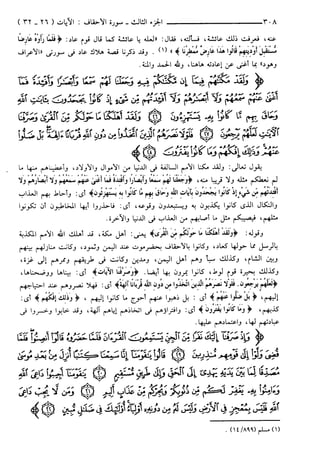 ٣٠٨ ـــ الجزء الثالث - سورة الأحقاف: الآيات (٢٦ - ٣٢)
عنه، فعرفت ذلك عائشة، فسألته، فقال: «لعله يا عائشة كما قال قوم عاد: ﴿فَلَمَّا رَأَوْهُ عَارِضًا
مُسْتَقْبِلَ أَوْدِيَتِهِمْ قَالُوا هَذَا عَارِضٌ مُمْطِرُنَا﴾» (١). وقد ذكرنا قصة هلاك عاد في سورتي «الأعراف
وهود» بما أغنى عن إعادته هاهنا، ولله الحمد والمنة.
﴿وَلَقَدْ مَكَّنَّاهُمْ فِيمَا إِنْ مَكَّنَّاكُمْ فِيهِ وَجَعَلْنَا لَهُمْ سَمْعًا وَأَبْصَارًا وَأَفْئِدَةً فَمَا
أَغْنَى عَنْهُمْ سَمْعُهُمْ وَلَا أَبْصَارُهُمْ وَلَا أَفْئِدَتُهُمْ مِنْ شَيْءٍ إِذْ كَانُوا يَجْحَدُونَ بِآيَاتِ اللَّهِ
وَحَاقَ بِهِمْ مَا كَانُوا بِهِ يَسْتَهْزِئُونَ ﴿٢٦﴾ وَلَقَدْ أَهْلَكْنَا مَا حَوْلَكُمْ مِنَ الْقُرَى وَصَرَّفْنَا
الْآيَاتِ لَعَلَّهُمْ يَرْجِعُونَ ﴿٢٧﴾ فَلَوْلَا نَصَرَهُمُ الَّذِينَ اتَّخَذُوا مِنْ دُونِ اللَّهِ قُرْبَانًا آلِهَةً بَلْ ضَلُّوا
عَنْهُمْ وَذَلِكَ إِفْكُهُمْ وَمَا كَانُوا يَفْتَرُونَ ﴿٢٨﴾
يقول تعالى: ولقد مكنا الأمم السالفة في الدنيا من الأموال والأولاد، وأعطيناهم منها ما
لم نعطكم مثله ولا قريبا منه، ﴿وَجَعَلْنَا لَهُمْ سَمْعًا وَأَبْصَارًا وَأَفْئِدَةً فَمَا أَغْنَى عَنْهُمْ سَمْعُهُمْ وَلَا أَبْصَارُهُمْ وَلَا
أَفْئِدَتُهُمْ مِنْ شَيْءٍ إِذْ كَانُوا يَجْحَدُونَ بِآيَاتِ اللَّهِ وَحَاقَ بِهِمْ مَا كَانُوا بِهِ يَسْتَهْزِئُونَ﴾ أي: وأحاط بهم العذاب
والنكال الذي كانوا يكذبون به ويستبعدون وقوعه، أي: فاحذروا أيها المخاطبون أن تكونوا
مثلهم، فيصيبكم مثل ما أصابهم من العذاب في الدنيا والآخرة.
وقوله: ﴿وَلَقَدْ أَهْلَكْنَا مَا حَوْلَكُمْ مِنَ الْقُرَى﴾ يعني: أهل مكة، قد أهلك الله الأمم المكذبة
بالرسل مما حولها كعاد، وكانوا بالأحقاف بحضرموت عند اليمن وثمود، وكانت منازلهم بينهم
وبين الشام، وكذلك سبأ وهم أهل اليمن، ومدين وكانت في طريقهم وممرهم إلى غزة،
وكذلك بحيرة قوم لوط، كانوا يمرون بها أيضا. ﴿وَصَرَّفْنَا الْآيَاتِ﴾ أي: بيناها ووضحناها،
﴿لَعَلَّهُمْ يَرْجِعُونَ. فَلَوْلَا نَصَرَهُمُ الَّذِينَ اتَّخَذُوا مِنْ دُونِ اللَّهِ قُرْبَانًا آلِهَةً﴾ أي: فهلا نصروهم عند احتياجهم
إليهم، ﴿بَلْ ضَلُّوا عَنْهُمْ﴾ أي: بل ذهبوا عنهم أحوج ما كانوا إليهم، ﴿وَذَلِكَ إِفْكُهُمْ﴾ أي:
كذبهم، ﴿وَمَا كَانُوا يَفْتَرُونَ﴾ أي: وافتراؤهم في اتخاذهم إياهم آلهة، وقد خابوا وخسروا في
عبادتهم لها، واعتمادهم عليها.
﴿وَإِذْ صَرَفْنَا إِلَيْكَ نَفَرًا مِنَ الْجِنِّ يَسْتَمِعُونَ الْقُرْآنَ فَلَمَّا حَضَرُوهُ قَالُوا أَنْصِتُوا فَلَمَّا
قُضِيَ وَلَّوْا إِلَى قَوْمِهِمْ مُنْذِرِينَ ﴿٢٩﴾ قَالُوا يَا قَوْمَنَا إِنَّا سَمِعْنَا كِتَابًا أُنْزِلَ مِنْ بَعْدِ مُوسَى
مُصَدِّقًا لِمَا بَيْنَ يَدَيْهِ يَهْدِي إِلَى الْحَقِّ وَإِلَى طَرِيقٍ مُسْتَقِيمٍ ﴿٣٠﴾ يَا قَوْمَنَا أَجِيبُوا دَاعِيَ اللَّهِ
وَآمِنُوا بِهِ يَغْفِرْ لَكُمْ مِنْ ذُنُوبِكُمْ وَيُجِرْكُمْ مِنْ عَذَابٍ أَلِيمٍ ﴿٣١﴾ وَمَنْ لَا يُجِبْ دَاعِيَ
اللَّهِ فَلَيْسَ بِمُعْجِزٍ فِي الْأَرْضِ وَلَيْسَ لَهُ مِنْ دُونِهِ أَوْلِيَاءُ أُولَئِكَ فِي ضَلَالٍ مُبِينٍ ﴿٣٢﴾
(١) مسلم (٨٩٩/ ١٤).